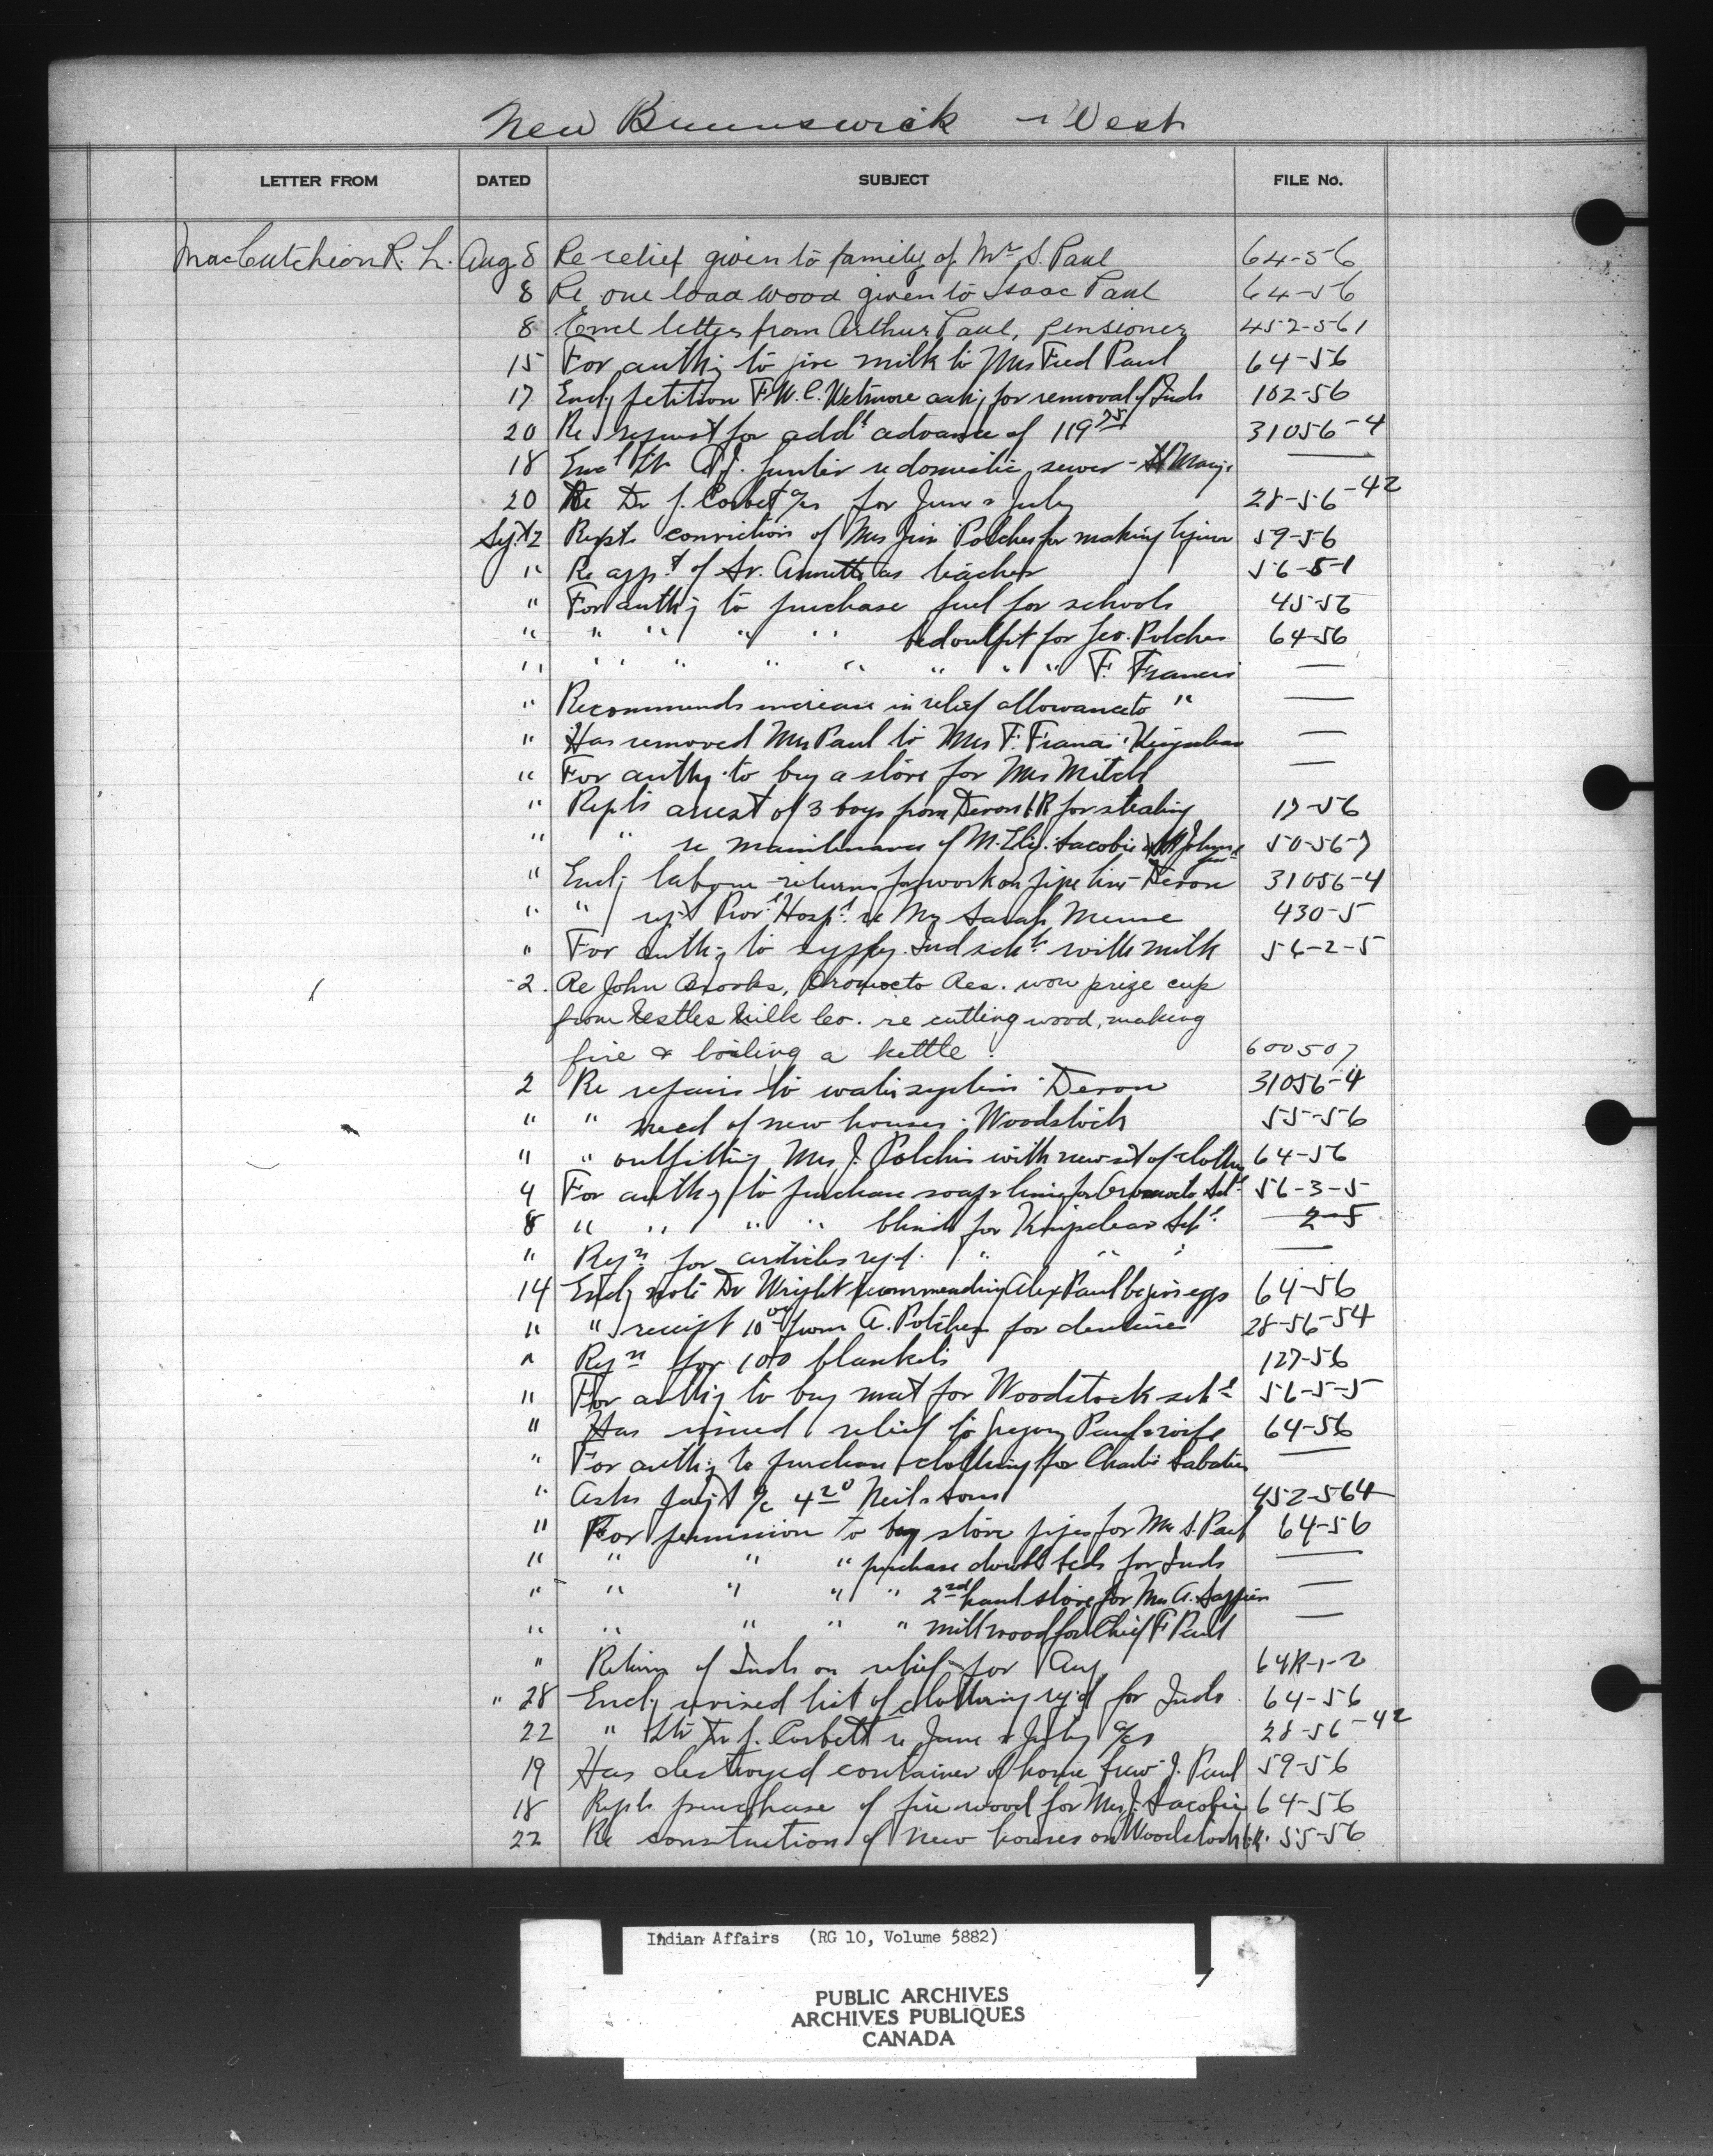 New Brunswick - West
LETTER FROM DATED SUBJECT FILE No.
MacCutcheon R. L. Aug 8 Re relief given to family of Mrs S. Paul 64-56
8 Re one load wood given to Isaac Paul 64-56
8 Encl letter from Arthur Paul, pensioner 452-561
15 For authy to give milk to Mrs Fred Paul 64-56
17 Encly petition F.W.C. Wetmore askg for removal of Inds 102-56
20 Re request for addl advance of 119 75 31056-4
18 Encl ltr J. Hunter re domestic sewer - St Marys —
20 Re Dr J. Corbet a/cs for June & July 28-56-42
Sept 2 Repts conviction of Mrs Jim Polches for making liquor 59-56
" Re appt of Sr. Annette as teacher 56-5-1
" For authy to purchase fuel for schools 45-56
" " " " " bed outfit for Geo. Polches 64-56
" " " " " " " " F. Francis —
" Recommends increase in relief allowance to " —
" Has removed Mrs Paul to Mrs F. Francis. Kingsclear —
" For authy to buy a stove for Mrs Mitch —
" Repts arrest of 3 boys from Devon I.R for stealing 17-56
" " re maintenance of M. Eliz. Sacobie St Johns 50-56-7
" Encly labour returns for work on pipe line - Devon 31056-4
" " rept Provl Hospl re Mrs Sarah Meuse 430-5
" For authy to supply Ind schls with milk 56-2-5
-2. Re John Brooks, Oromocto Res. won prize cup
from Nestles Milk Co. re cutting wood, making
fire & boiling a kettle. 600507
2 Re repairs to water system - Devon 31056-4
" " need of new houses - Woodstock 55-56
" " outfitting Mrs J. Polchis with new set of clothes 64-56
4 For authy to purchase soap & lime for Oromocto Schl 56-3-5
8 " " " " blinds for Kingsclear Schl. 2-5
" Reqn for articles reqd. " " " —
14 Encly note Dr Wright recommending Alex Paul be given eggs 64-56
" " receipt 10 00 from A. Polches for dentures 28-56-54
" Reqn for 100 blankets 127-56
" For authy to buy mat for Woodstock schl 56-5-5
" Has issued relief to Gregory Paul & wife 64-56
" For authy to purchase clothing for Charlie Sabatis —
" Asks payt a/c 4 20 Neil & sons 452-564
" For permission to buy stove pipes for Mrs S. Paul 64-56
" " " " purchase double beds for Inds —
" " " " " 2nd hand stove for Mrs A. Sappier —
" " " " " mill wood for Chief F Paul —
" Return of Inds on relief for Aug 64R-1-2
" 28 Encly revised list of clothing reqd for Inds 64-56
22 " ltr Dr J. Corbett re June & July a/cs 28-56-42
19 Has destroyed container of home brew J. Paul 59-56
18 Repts purchase of fire wood for Mrs J. Sacobie 64-56
22 Re construction of new houses on Woodstock I.R. 55-56
Indian Affairs (RG 10, Volume 5882)
PUBLIC ARCHIVES
ARCHIVES PUBLIQUES
CANADA